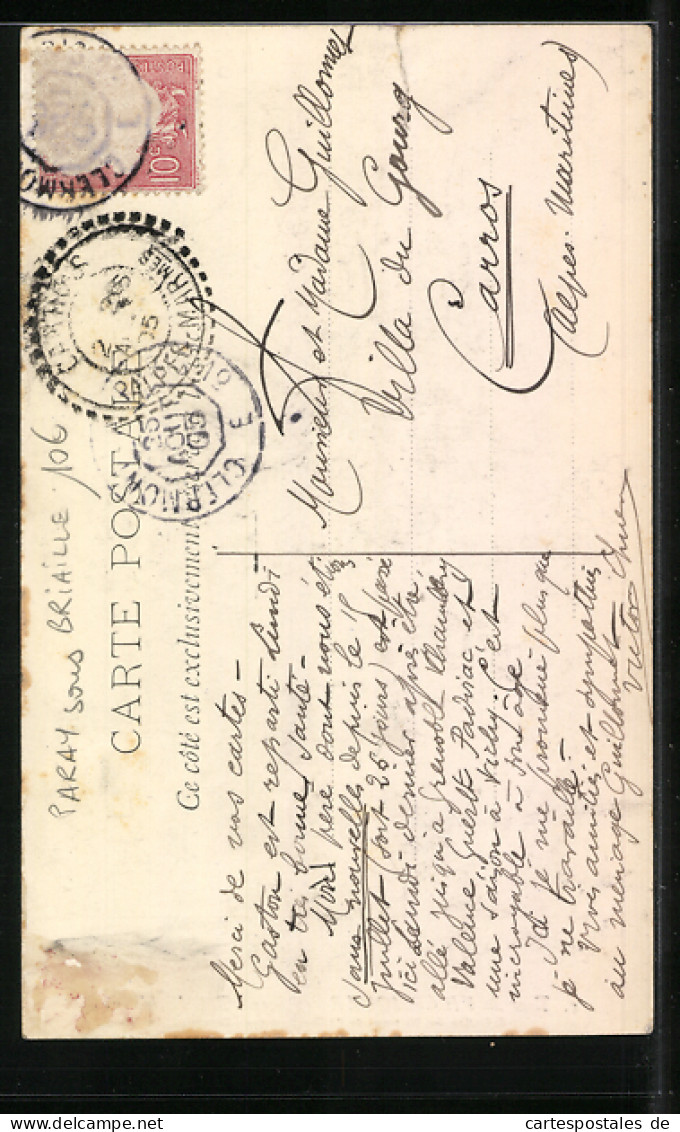 CARTE POSTALE
Ce côté est exclusivement
PARAY sous BRIAILLE 106
10c
CLERMO
CARROS
ALPES MARITIMES
CLERMONT
Merci de vos cartes -
Gaston est reparti Lundi
en très bonne santé -
Mon père dont nous étions
sans nouvelles depuis le 15
juillet (soit 25 jours) est passé
ici Lundi dernier après être
allé jusqu'à Grenoble Chambéry
Valence Guéret et
une saison à Vichy. C'est
incroyable à son âge -
Ici je me promène plus que
je ne travaille -
Mes amitiés et sympathies
au ménage Guillomet
Victor
Monsieur et Madame Guillomet
Villa du Gourg
Carros
(Alpes-Maritimes)
cartespostales de delcampe.net